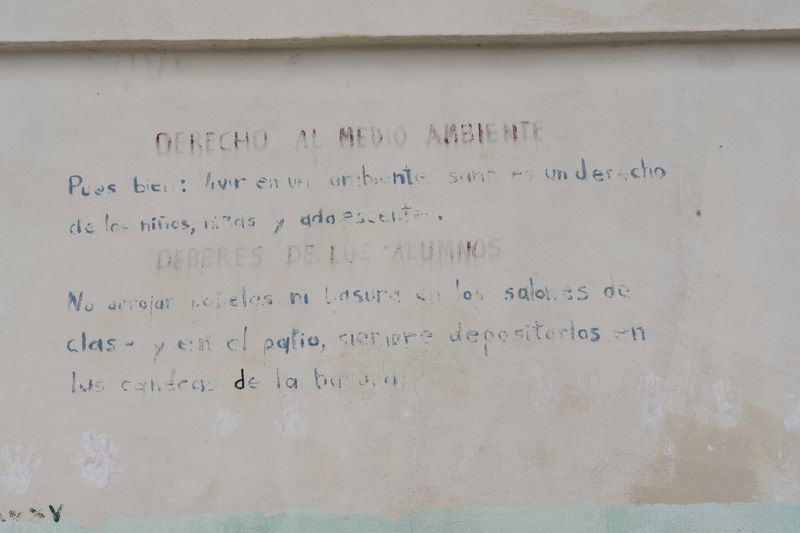 DERECHO AL MEDIO AMBIENTE
Pues bien: Vivir en un ambiente sano es un derecho
de los niños, niñas y adolescentes.
DEBERES DE LOS ALUMNOS
No arrojar papeles ni basura en los salones de
clase y en el patio, siempre depositarlas en
las canecas de la basura